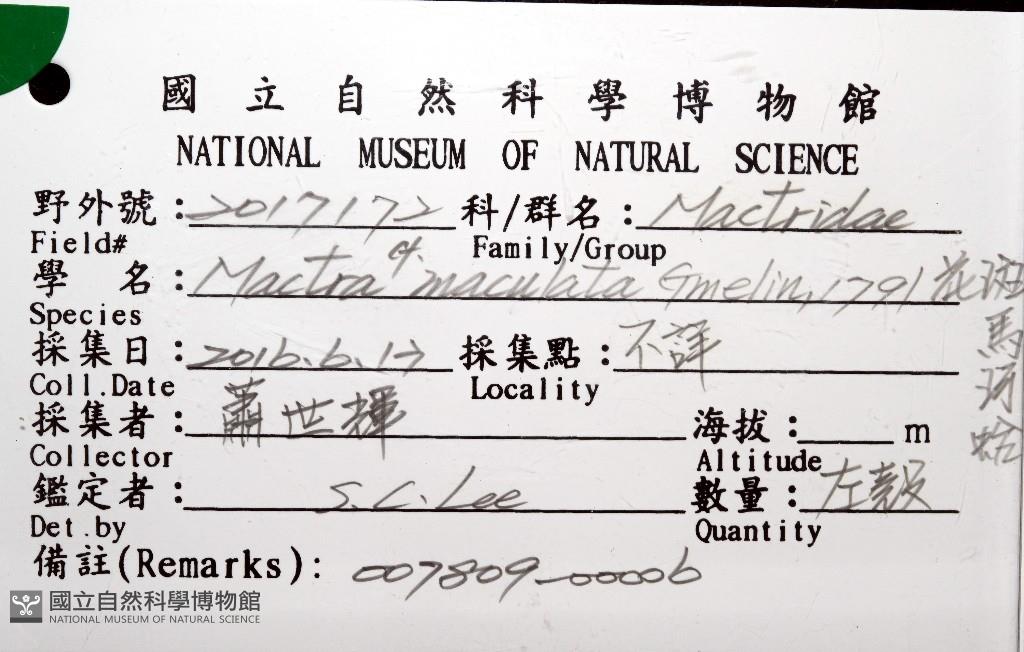 國立自然科學博物館
NATIONAL MUSEUM OF NATURAL SCIENCE
野外號：2017172 科/群名：Mactridae
Field# Family/Group
學 名：Mactra cf. maculata Gmelin, 1791 花斑馬珂蛤
Species
採集日：2016.6.17 採集點：不詳
Coll.Date Locality
採集者：蕭世輝 海拔：m
Collector Altitude
鑑定者：S.C.Lee 數量：左殼
Det.by Quantity
備註(Remarks)：007809-00006
國立自然科學博物館
NATIONAL MUSEUM OF NATURAL SCIENCE